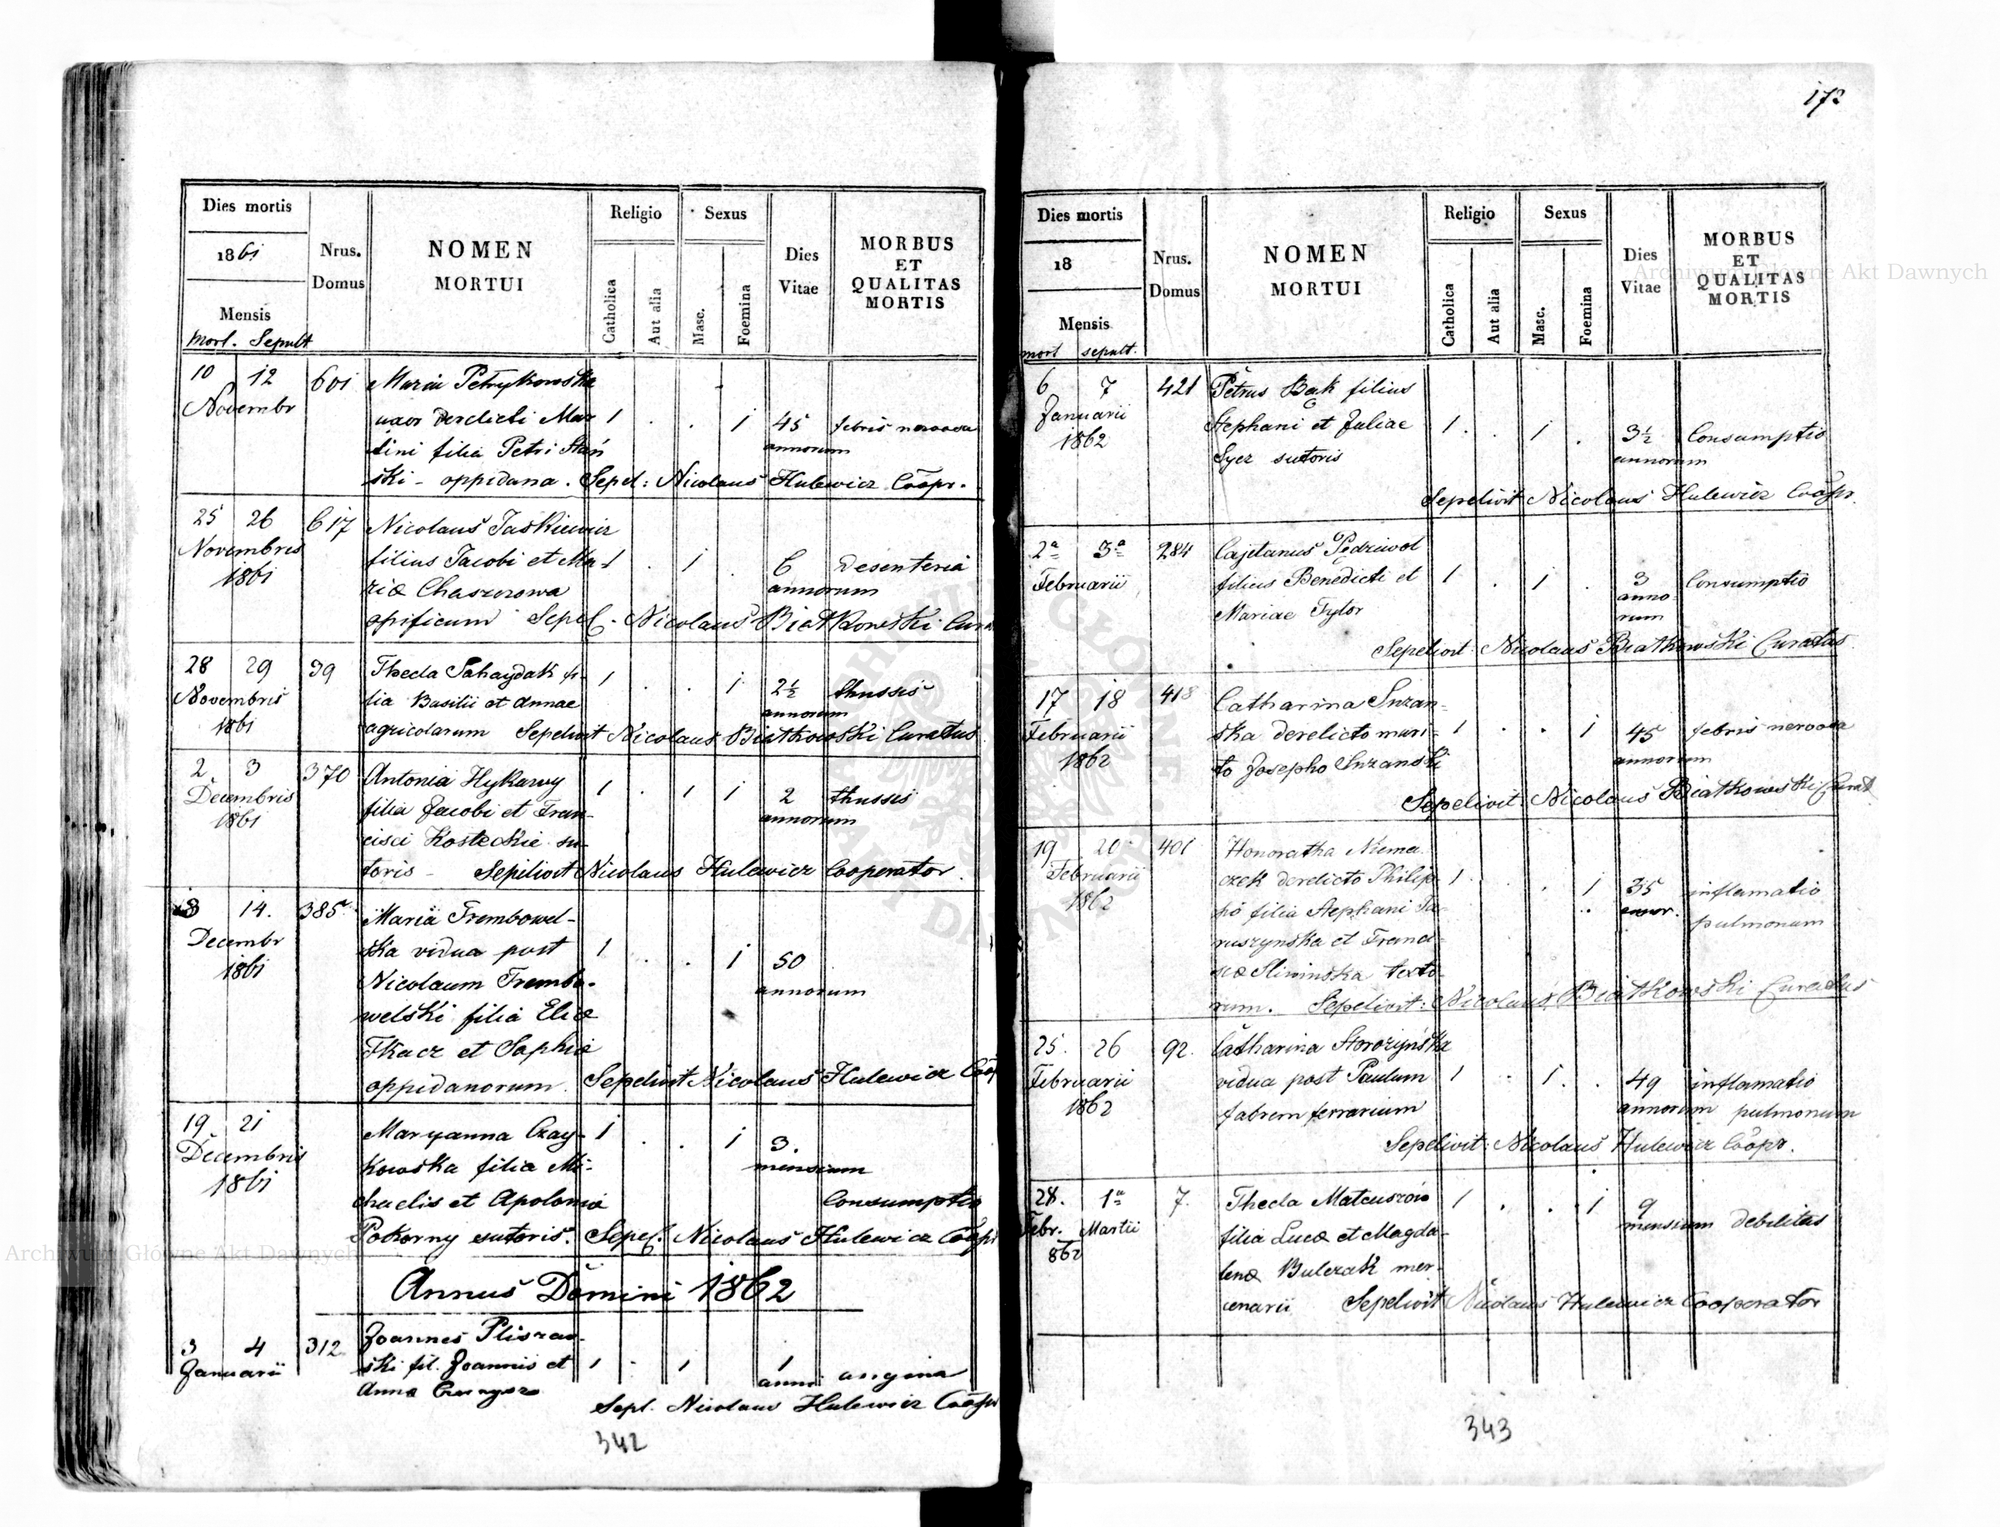 173
Dies mortis
1861
Mensis
Mort. Sepult
Nrus. Domus
NOMEN
MORTUI
Religio
Catholica
Aut alia
Sexus
Masc.
Foemina
Dies Vitae
MORBUS
ET
QUALITAS
MORTIS
10 12 601 Maria Petrykowska
Novembr uxor derelicti Mar 1 . . 1 45 febris nervosa
tini filia Petri Stań annorum
ski - oppidana. Sepel: Nicolaus Hulewicz Coopr.
25 26 617 Nicolaus Jaskiewicz
Novembris filius Jacobi et Ma- 1 . 1 . 6 Desenteria
1861 riæ Chaszczowa annorum
opificum Sepel. Nicolaus Białkowski Cura
28 29 39 Thecla Sahaydak fi-
Novembris lia Basilii et Annae 1 . . 1 2½ thussis
1861 annorum
agricolarum Sepelivit Nicolaus Białkowski Curatus
2 3 370 Antonia Hykawy
Decembris filia Jacobi et Fran- 1 . 1 1 2 thussis
1861 cisci Kosteckie su- annorum
toris - Sepilivit Nicolaus Hulewicz Cooperator.
13 14. 385 Maria Trembowel-
Decembr ska vidua post 1 . . 1 50
1861 Nicolaum Trembo- annorum
welski filia Eliæ
Tkacz et Sophiæ
oppidanorum. Sepelivit Nicolaus Hulewicz Coop
19 21 Maryanna Czay- 1 . . 1 3.
Decembris kowska filia Mi- mensium
1861 chaelis et Apoloniæ Consumptio
Pokorny sutoris. Sepel. Nicolaus Hulewicz Coopr
Annus Domini 1862
3 4 312 Joannes Pliszew-
Januarii ski fil. Joannis et 1 . 1 1 angina
Annæ anni
Sepl. Nicolaus Hulewicz Coopr
342
Dies mortis
18
Mensis
mort sepult.
Nrus. Domus
NOMEN
MORTUI
Religio
Catholica
Aut alia
Sexus
Masc.
Foemina
Dies Vitae
MORBUS
ET
QUALITAS
MORTIS
6 7 421 Petrus Bąk filius
Januarii Stephani et Juliae 1 . . 1 . 3½ Consumptio
1862 Syez sutoris annorum
Sepelivit Nicolaus Hulewicz Coopr.
2ª 3ª 284 Cajetanus Pędziwol
Februarii filius Benedicti et 1 . 1 . 3 Consumptio
Mariae Tylor annorum
Sepelivit Nicolaus Białkowski Curatus
17 18 418 Catharina Suzan-
Februarii ska derelicto mari- 1 . . 1 45 febris nervosa
1862 to Josepho Suzanski annorum
Sepelivit: Nicolaus Białkowski Curat
19 20 401 Honoratha Niema
Februarii czek derelicto Philip- 1 . . 1 35 inflamatio
1862 po filia Stephani Ja- annor. pulmonum
ruszynska et Francis-
cæ Sliwinska texto-
rum. Sepelivit: Nicolaus Białkowski Curatus
25. 26 92. Catharina Storozyńska
Februarii vidua post Paulum 1 . 1 . . 49 inflamatio
1862 fabrem ferrarium annorum pulmonum
Sepelivit: Nicolaus Hulewicz Coopr.
28. 1ª 7. Thecla Mateuszów 1 . . 1 9
Febr. Martii filia Lucæ et Magda- mensium debilitas
862 lenæ Bulczak mer-
cenarii Sepelivit Nicolaus Hulewicz Cooperator
343
Archiwum Główne Akt Dawnych
Archiwum Główne Akt Dawnych